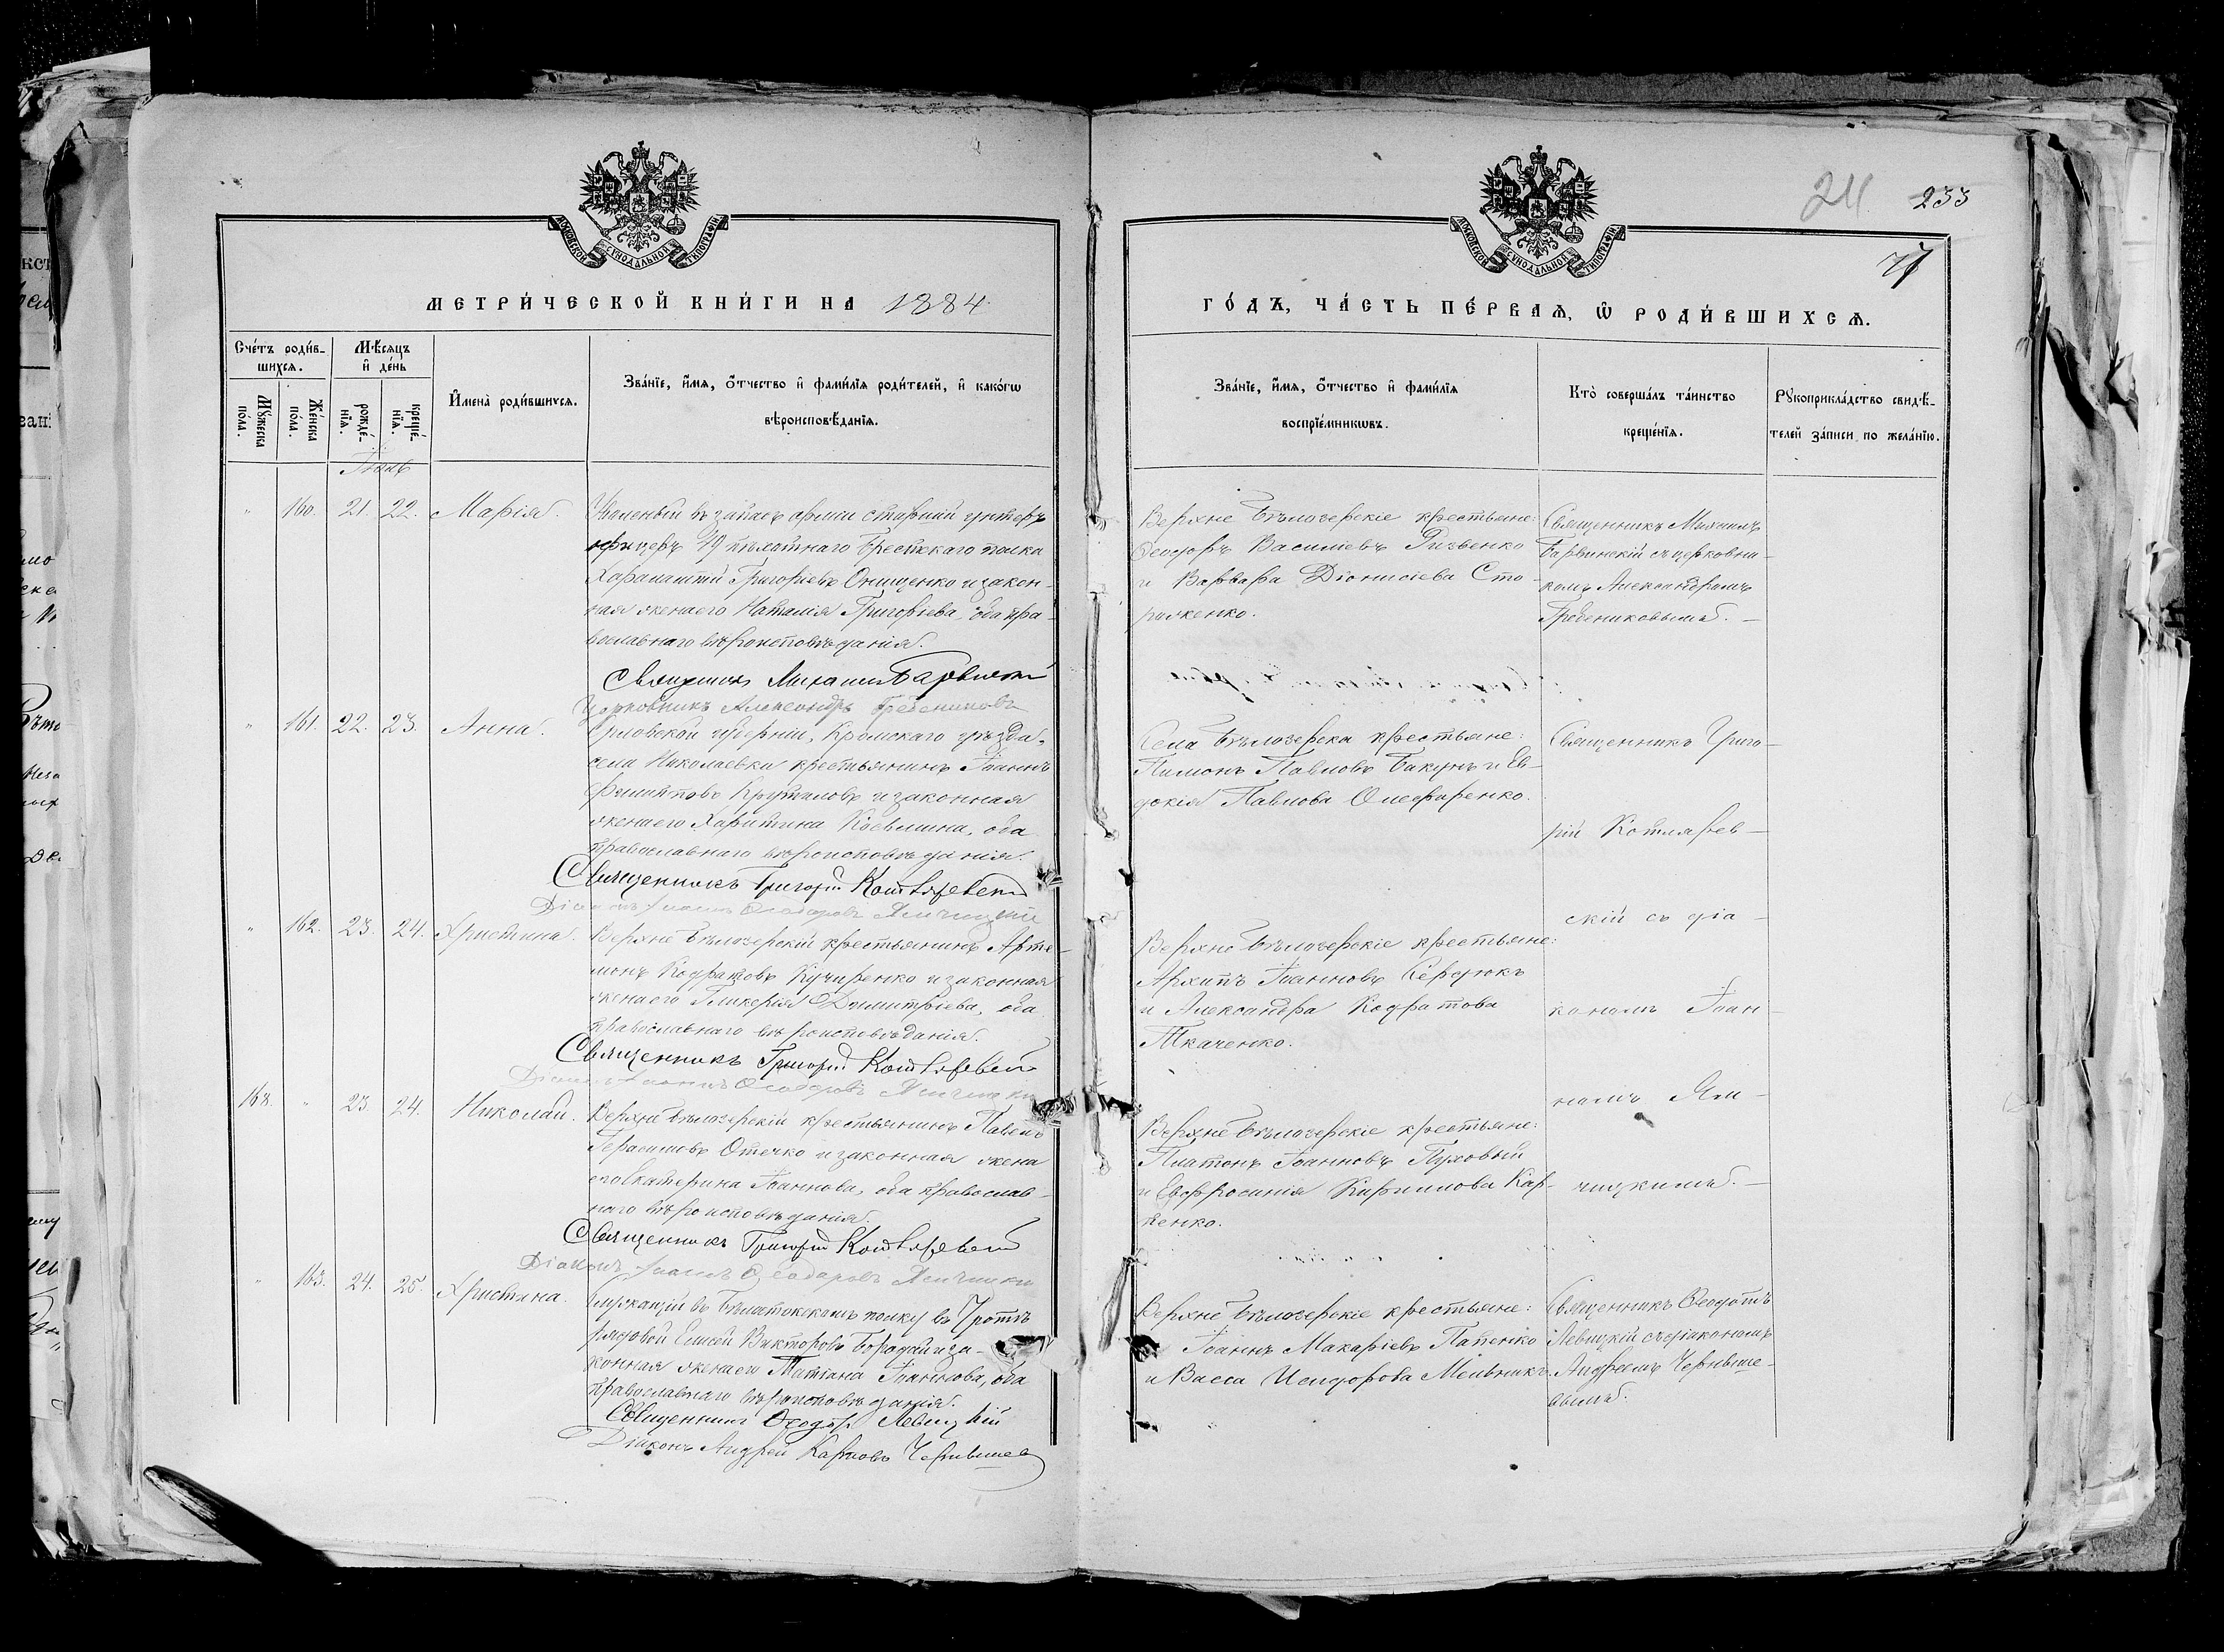 МОСКОВСКОЙ СѴНОДАЛЬНОЙ ТИПОГРАФІИ
МЕТРИ́ЧЕСКОЙ КНИ́ГИ НА 1884
Сче́тъ роди́в-
шихсѧ.
Мѣ́сѧцъ
и҆ де́нь
Мꙋ́жеска
по́ла.
Же́нска
по́ла.
рожде́-
нїѧ.
креще́-
нїѧ.
И҆мена̀ роди́вшихсѧ.
Зва́нїе, и҆́мѧ, ѻ҆́тчество и҆ фами́лїѧ роди́телей, и҆ како́гѡ
вѣроисповѣ́данїѧ.
Іюль
" 160. 21. 22. Марія.
Уволеный въ запасъ арміи старшій унтеръ
офицеръ 49 пѣхотнаго Брестскаго полка
Харалампій Григоріевъ Онищенко и закон-
ная жена его Наталія Григоріева, оба пра-
вославнаго вѣроисповѣданія.
Священникъ Михаилъ Барвинскій
Церковникъ Александръ Гребениковъ
" 161. 22. 23. Анна.
Орловской губерніи, Кромскаго уѣзда,
села Николаевки крестьянинъ Іоаннъ
Филиповъ Крутиловъ и законная
жена его Харитина, оба
православнаго вѣроисповѣданія.
Священникъ Григорій Котляревскій
Діаконъ Іоаннъ Ѳеодоровъ Ямчицкій
" 162. 23. 24. Христина.
Верхне Бѣлозерскій крестьянинъ Арте-
монъ Кодратовъ Кучиренко и законная
жена его Гликерія Димитріева, оба
православнаго вѣроисповѣданія.
Священникъ Григорій Котляревскій
Діаконъ Іоаннъ Ѳеодоровъ Ямчицкій
168. " 23. 24. Николай.
Верхне Бѣлозерскій крестьянинъ Павелъ
Герасимовъ Отечко и законная жена
его Екатерина Іоаннова, оба православ-
наго вѣроисповѣданія.
Священникъ Григорій Котляревскій
Діаконъ Іоаннъ Ѳеодоровъ Ямчицкій
" 163. 24. 25. Христина.
Служащій въ Бѣлостокскомъ полку въ 7 ротѣ
рядовой Елисей Викторовъ Бородай и за-
конная жена его Татіана Іоаннова, оба
православнаго вѣроисповѣданія.
Священникъ Ѳеодотъ Левицкій
Діаконъ Андрей Карповъ Чернышев
24 233
МОСКОВСКОЙ СѴНОДАЛЬНОЙ ТИПОГРАФІИ
ГО́ДЪ, ЧА́СТЬ ПЕ́РВАѦ, Ѡ҆ РОДИ́ВШИХСѦ.
Зва́нїе, и҆́мѧ, ѻ҆́тчество и҆ фами́лїѧ
воспрїе́мникѡвъ.
Кто̀ соверша́лъ та́инство
креще́нїѧ.
Рꙋкоприкла́дство свидѣ́-
телей за́писи по жела́нїю.
Верхне Бѣлозерскіе крестьяне:
Ѳеодоръ Василіевъ Ризвенко
и Варвара Діонисіева Сто-
роженко.
Священникъ Михаилъ
Барвинскій съ церковни-
комъ Александромъ
Гребениковымъ.
Села Бѣлозерска крестьяне:
Пимонъ Павловъ Бакунъ и Ев-
докія Павлова Олефиренко.
Священникъ Григо-
рій Котлярев-
скій съ діа-
кономъ Іоан-
номъ Ям-
чицкимъ.
Верхне Бѣлозерскіе крестьяне:
Архипъ Іоанновъ Сердюкъ
и Александра Кодратова
Ткаченко.
Верхне Бѣлозерскіе крестьяне:
Платонъ Іоанновъ Пуховый
и Евфросинія Кирилова Кар-
пенко.
Верхне Бѣлозерскіе крестьяне:
Іоаннъ Макаріевъ Папенко
и Васса Исидорова Мельникъ.
Священникъ Ѳеодотъ
Левицкій съ діакономъ
Андреемъ Черныше-
вымъ.